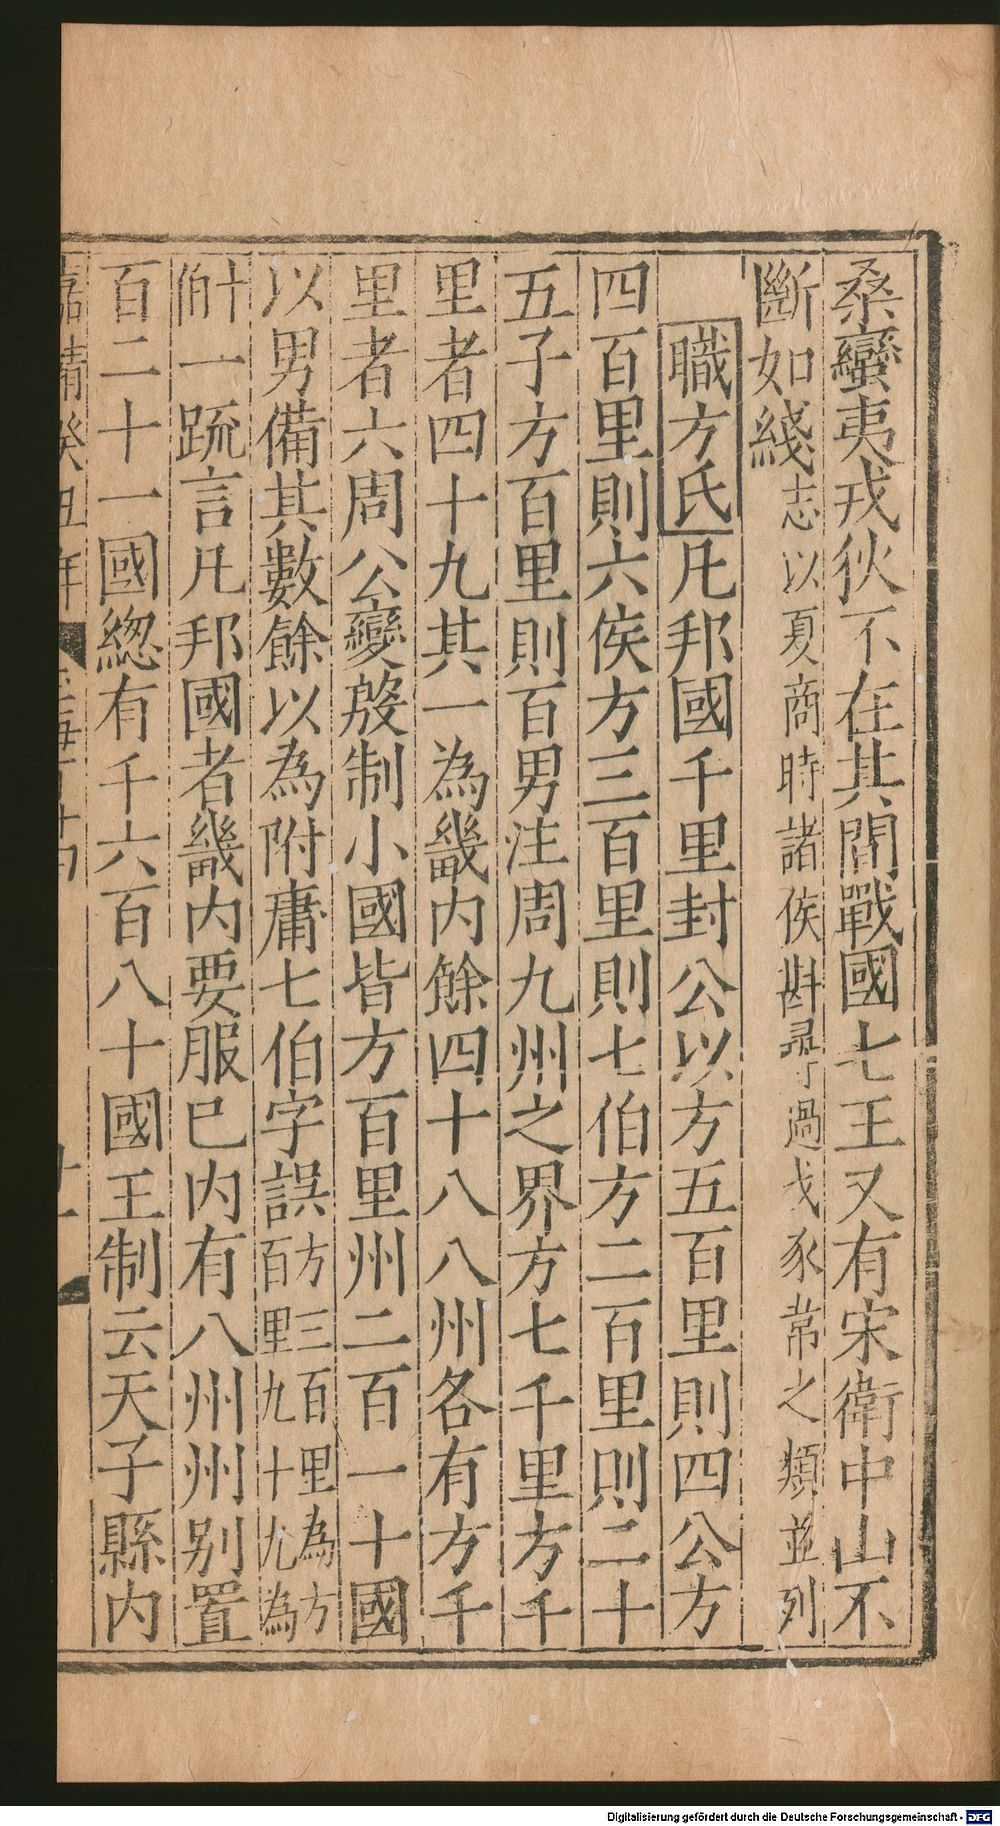 桑蠻夷戎狄不在其間戰國七王又有宋衛中山不
斷如綫志以夏商時諸侯斟尋過戈豕韋之類並列
職方氏凡邦國千里封公以方五百里則四公方
四百里則六侯方三百里則七伯方二百里則二十
五子方百里則百男注周九州之界方七千里方千
里者四十九其一為畿内餘四十八八州各有方千
里者六周公變殷制小國皆方百里州二百一十國
以男備其數餘以為附庸七伯字誤方三百里為方百里九十九為
一疏言凡邦國者畿内要服已内有八州州别置
百二十一國緫有千六百八十國王制云天子縣内
嘉靖癸丑年
Digitalisierung gefördert durch die Deutsche Forschungsgemeinschaft - DFG